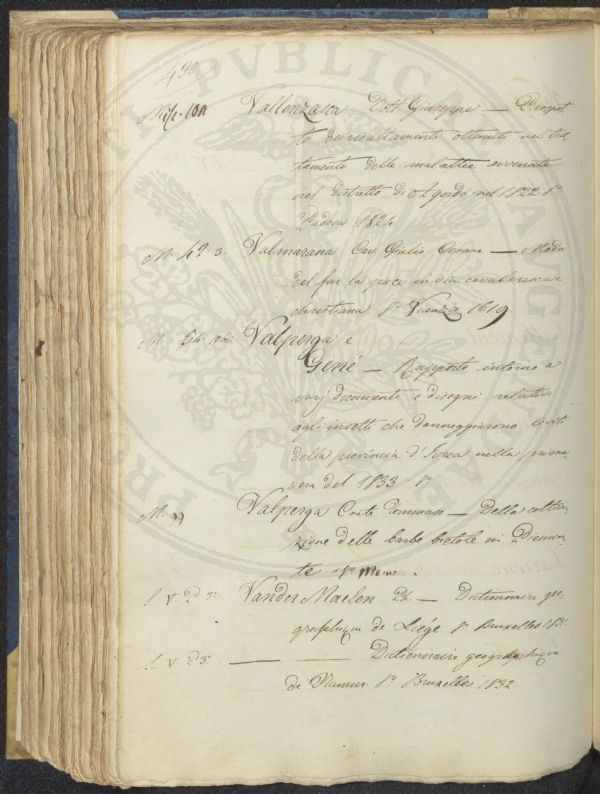 430
Misc. 101 Vallenzasca, Dott. Giuseppe — Prospet-
to dei risultamenti ottenuti nel trat-
tamento delle malattie avvenute
nel distretto di Agordo nel 1822 8°
Padova 1824
M. 42 3. Valmarana, Cav. Giulio Cesare — Modo
del far la pace in via cavaleresca e
christiana 8° Vicenza 1619.
M. 54 Valperga e
Gené — Rapporto intorno a
varj documenti e disegni relativi
agli insetti che danneggiarono le viti
della provincia d'Ivrea nella prima-
vera del 1833 8°
M. 99 Valperga Conte Tommaso — Della colti-
zione delle barbe bietole in Piemon-
te
S. V. D 3. Vander Maelen Ph. — Dictionnaire geo-
graphique de Liége 8° Bruxelles
S. V. D 3. — Dictionnaire geographique
de Namur 8° Bruxelles 1832.
PUBLICAE